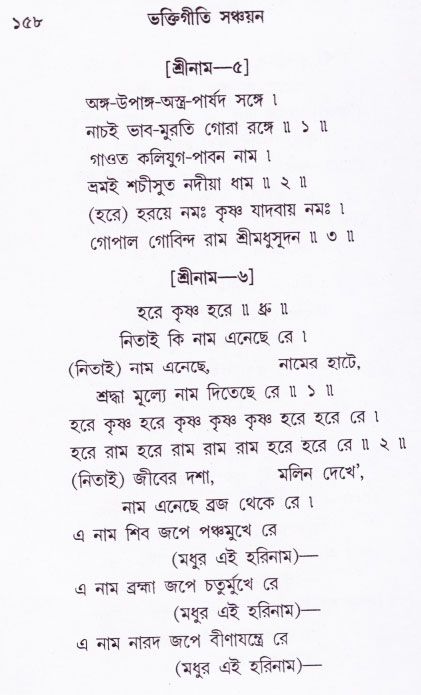 ১৫৮ ভক্তিগীতি সঞ্চয়ন
[শ্রীনাম—৫]
অঙ্গ-উপাঙ্গ-অস্ত্র-পার্ষদ সঙ্গে ।
নাচই ভাব-মুরতি গোরা রঙ্গে ॥ ১ ॥
গাওত কলিযুগ-পাবন নাম ।
ভ্রমই শচীসুত নদীয়া ধাম ॥ ২ ॥
(হরে) হরয়ে নমঃ কৃষ্ণ যাদবায় নমঃ ।
গোপাল গোবিন্দ রাম শ্রীমধুসূদন ॥ ৩ ॥
[শ্রীনাম—৬]
হরে কৃষ্ণ হরে ॥ ধ্রু ॥
নিতাই কি নাম এনেছে রে ।
(নিতাই) নাম এনেছে, নামের হাটে,
শ্রদ্ধা মূল্যে নাম দিতেছে রে ॥ ১ ॥
হরে কৃষ্ণ হরে কৃষ্ণ কৃষ্ণ কৃষ্ণ হরে হরে রে ।
হরে রাম হরে রাম রাম রাম হরে হরে রে ॥ ২ ॥
(নিতাই) জীবের দশা, মলিন দেখে',
নাম এনেছে ব্রজ থেকে রে ।
এ নাম শিব জপে পঞ্চমুখে রে
(মধুর এই হরিনাম)—
এ নাম ব্রহ্মা জপে চতুর্মুখে রে
(মধুর এই হরিনাম)—
এ নাম নারদ জপে বীণাযন্ত্রে রে
(মধুর এই হরিনাম)—